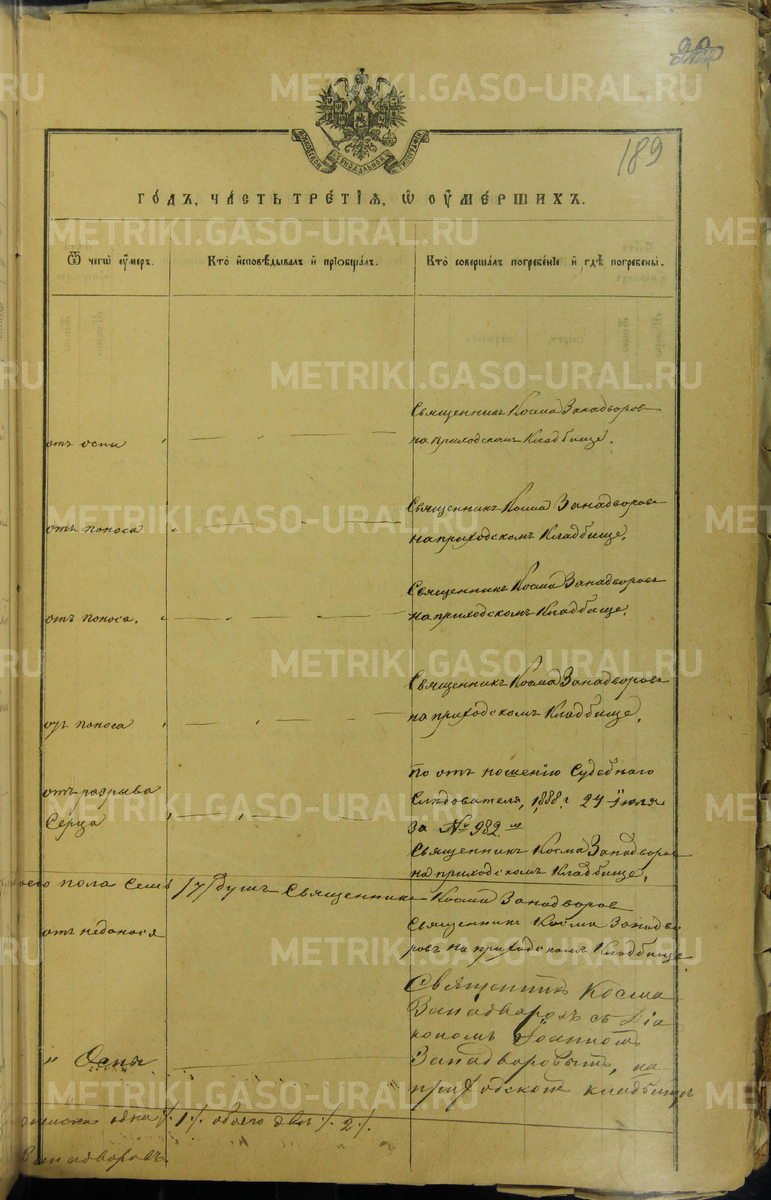 189
МОСКОВСКОЙ СѴНОДАЛЬНОЙ ТИПОГРАФІИ
ГОДЪ, ЧАСТЬ ТРЕТІЯ, Ѡ ОУМЕРШИХЪ.
Ѿ чегѡ оумеръ.
Кто исповѣдывалъ и пріобщалъ.
Кто совершалъ погребеніе и гдѣ погребены.
отъ оспы
Священникъ Косма Западворов
на приходскомъ Кладбище.
отъ поноса
Священникъ Косма Западворовъ
на приходскомъ Кладбище.
отъ поноса.
Священникъ Косма Западворовъ
на приходскомъ Кладбище.
отъ поноса
Священникъ Косма Западворовъ
на приходскомъ Кладбище.
отъ разрыва
Серца
По отъ ношенію Судебнаго
Слѣдователя, 1888 г 24 Іюля
за № 982
Священникъ Косма Западворов
на приходскомъ Кладбище.
пола Семь /7/ душъ Священникъ Косма Западворов
отъ недонося
Священникъ Косма Западво
ровъ на приходскомъ Кладбище
" Оспы
Священникъ Косма
Западворовъ съ Діа
кономъ Іоанномъ
Западворовымъ, на
приходскомъ кладбище
одна /. 1 /. обоего два /. 2 /.
Западворовъ.
METRIKI.GASO-URAL.RU